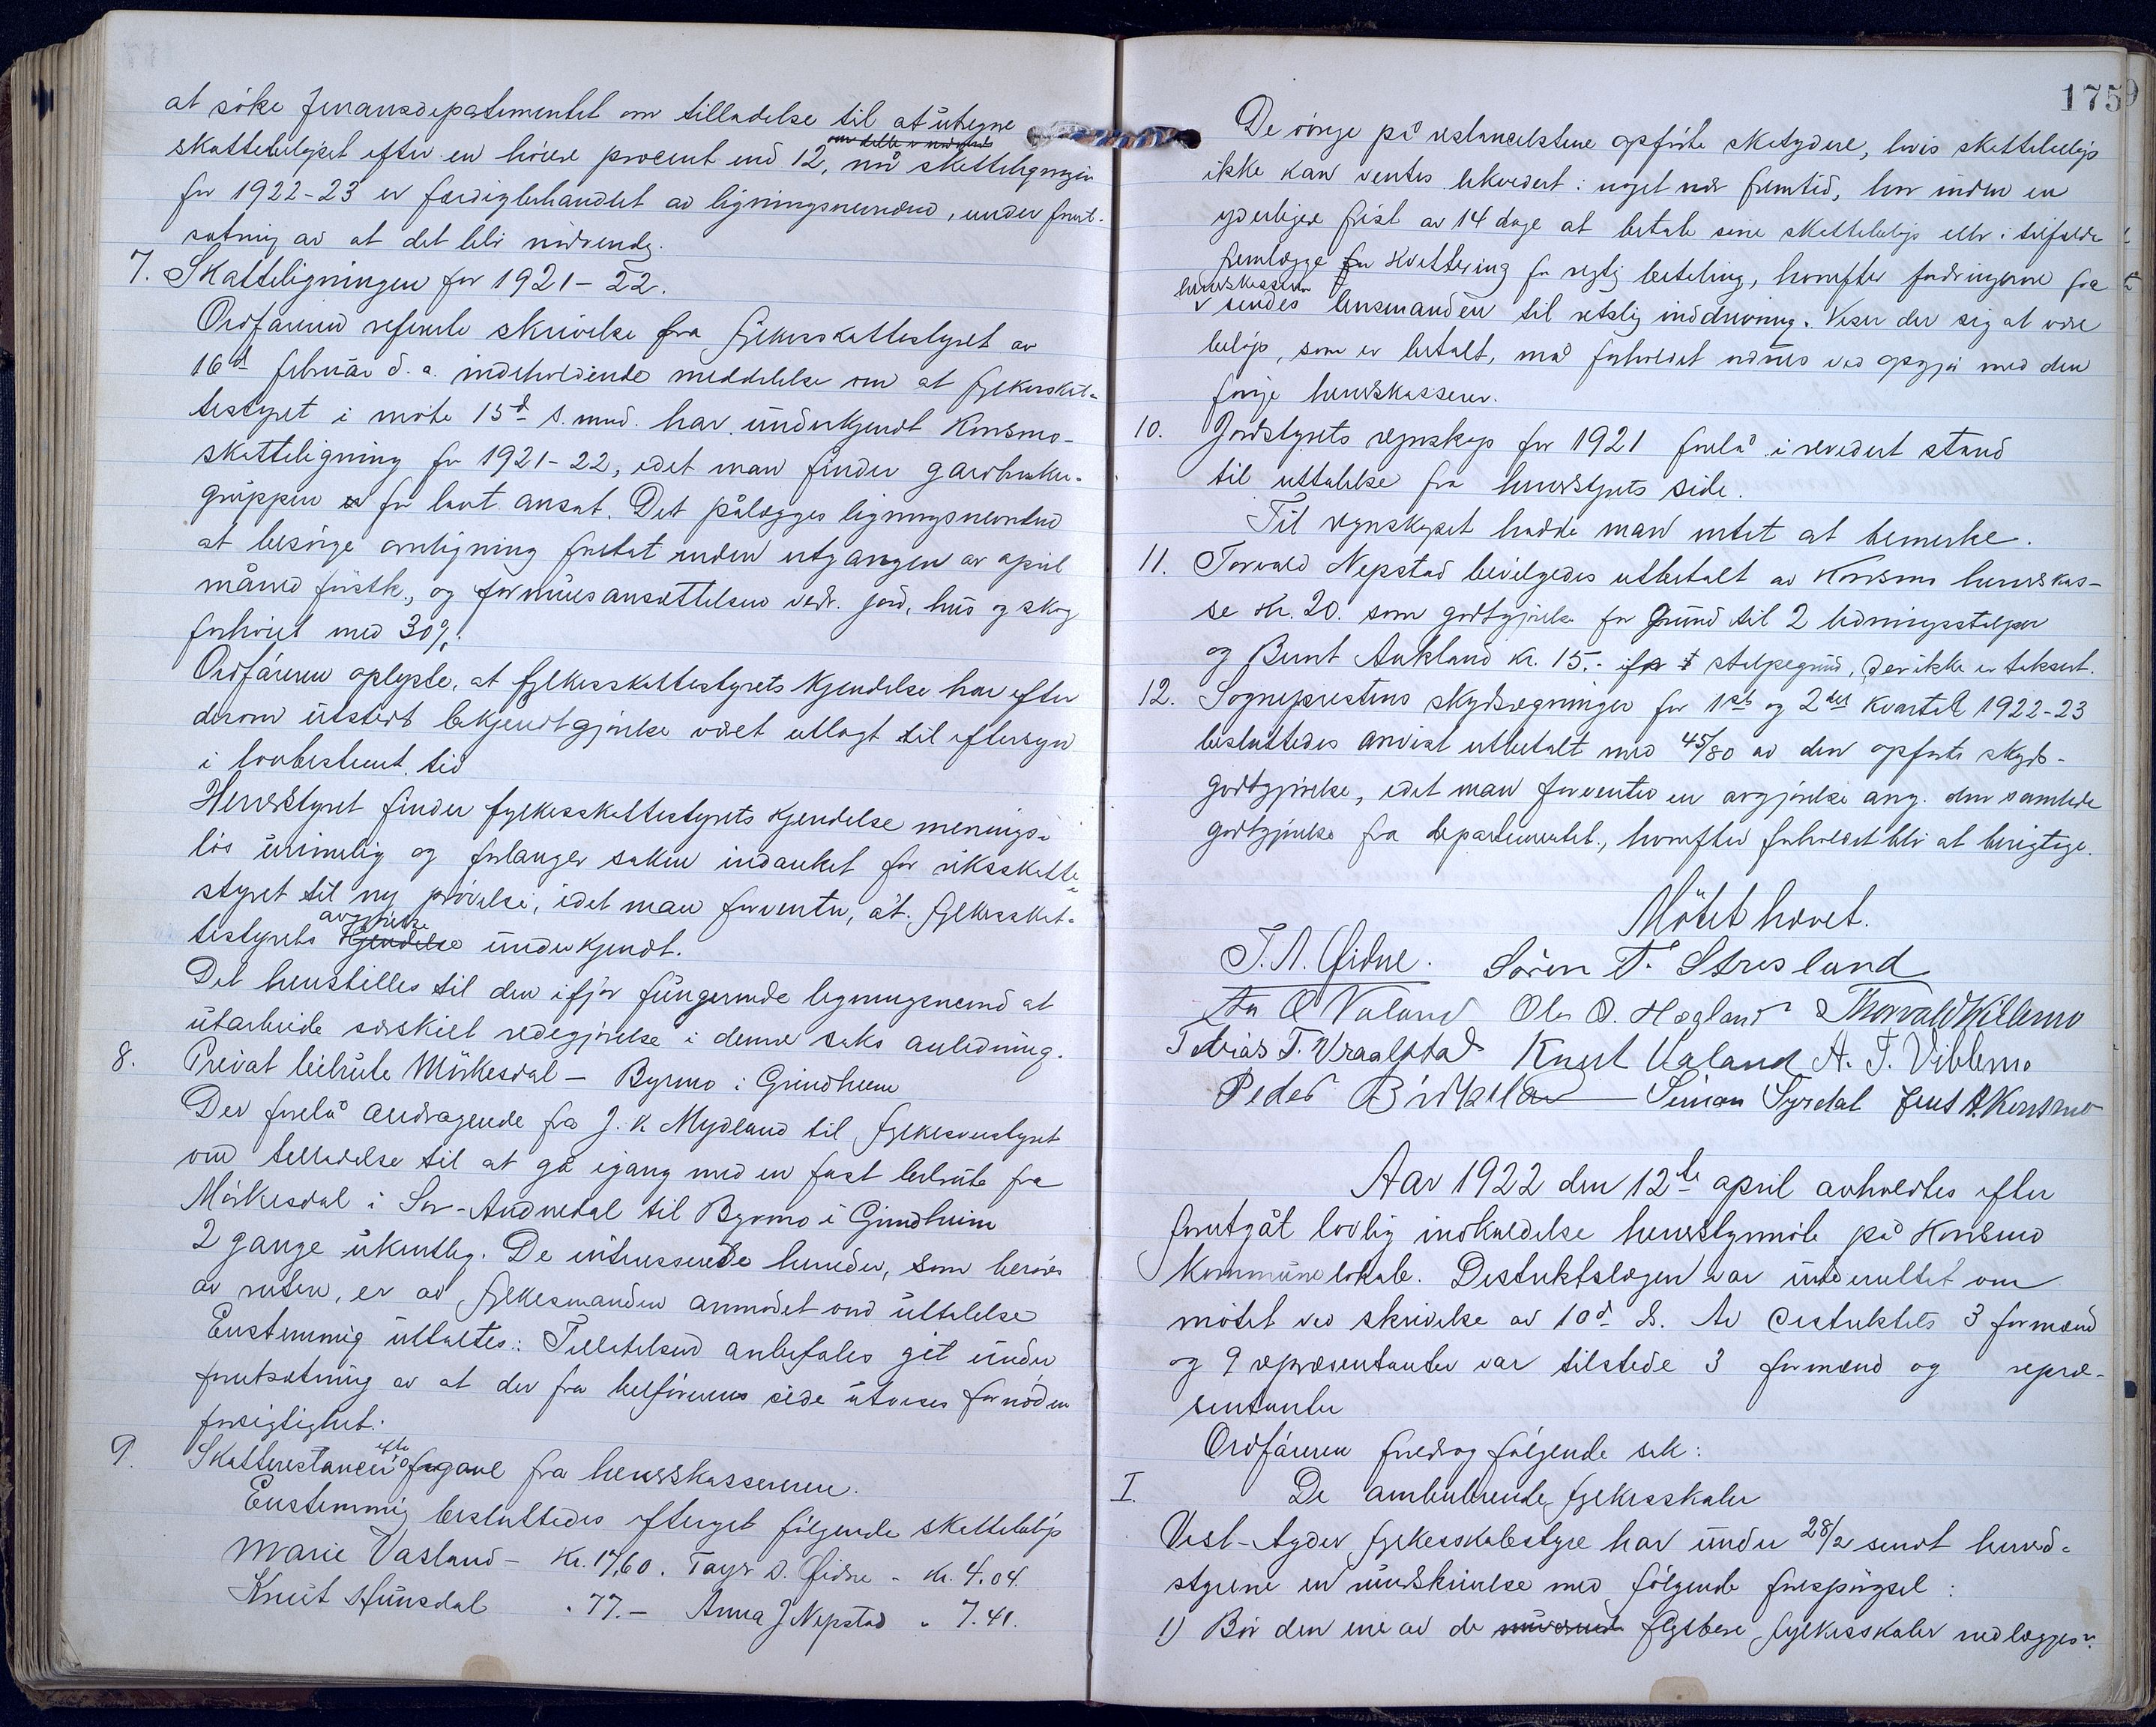 at söke finansdepartementet om tilladelse til at utregne
skattebelöpet efter en höiere procent end 12, når skatteligningen
for 1922-23 er færdigbehandlet av ligningsnevnden, under forut-
sætning av at det blir nödvendig.
7. Skatteligningen for 1921-22.
Ordföreren refererte skrivelse fra fylkesskattestyret av
16d februar d. a. indeholdende meddelelse om at fylkesskat-
testyret i möte 15d s. mnd. har underkjendt Konsmo-
skatteligning for 1921-22, idet man finder gardbruker-
gruppen for lavt ansat. Det pålægges ligningsnevnden
at besörge omligning foretat inden utgangen av april
måned förstk., og formuesansættelsen vedr. jord, hus og skog
forhöiet med 30%.
Ordföreren oplyste, at fylkesskattestyrets kjendelse har efter
derom utstedt bekjendtgjörelse været utlagt til eftersyn
i lovbestemt tid
Herredstyret finder fylkesskattestyrets kjendelse menings-
lös urimelig og forlanger saken indanket for riksskatte-
styret til ny prövelse, idet man forventer, at fylkesskat-
avgjörelse
testyrets kjendelse underkjendt.
Det henstilles til den ifjor fungerende ligningsnemd at
utarbeide særskilt redegjörelse i denne saks anledning.
8. Privat bilrute Mörkesdal - Byremo i Grindheim
Der forelå andragende fra J. K. Mydland til fylkesveistyret
om tilladelse til at gå igang med en fast bilrute fra
Mörkesdal i Sör-Audnedal til Byremo i Grindheim
2 gange ukentlig. De interesserte herreder, som beröres
av ruten, er av fylkesmanden anmodet om uttalelse
Enstemmig uttaltes: Tilladelsen anbefales git under
forutsætning av at der fra bilförerens side utvises fornöden
forsigtighet.
9. Skatterestancer efter opgave fra herredskassereren.
Enstemmig besluttedes eftergit fölgende skattebelöp
Marie Vasland - Kr. 17,60. Tayr O. Öidne - kr. 4.04.
Knut Hunsdal " 77.- Anna J Nepstad " 7.41.
1759
De övrige på restancelistene opförte skatydere, hvis skattebelöp
ikke kan ventes likvidert i noget nær fremtid, har inden en
yderligere frist av 14 dage at betale sine skattebelöp eller i tilfælde
fremlægge kvittering for rigtig betaling, hvorefter fordringerne fra
herredskassereren
sendes lensmanden til retslig inddrivning. Viser der sig at være
belöp, som er betalt, må forholdet ordnes ved opgjör med den
forrige herredskasserer.
10. Jordstyrets regnskap for 1921 forelå i revidert stand
til uttalelse fra herredstyrets side.
Til regnskapet hadde man intet at bemerke.
11. Torvald Nepstad bevilgedes utbetalt av Konsmo herredskas-
se kr. 20. som godtgjörelse for grund til 2 ledningsstolper
og Bernt Aukland kr. 15.- for stolpegrund, der ikke er taksert.
12. Sogneprestens skydsregninger for 1ste og 2det kvartal 1922-23
besluttedes anvist utbetalt med 45/80 av den opförte skyds-
godtgjörelse, idet man forventer en avgjörelse ang. den samlede
godtgjörelse fra departementet, hvorefter forholdet blir at berigtige.
Mötet hævet.
T. A. Öidne. Sören T. Stresland
O Valand Ole O. Hægland Thorvald Killemo
Tobias T. Vraalstad Knut Valand A. T. Viblemo
Peder Birkeland Simon Syrdal Jens A. Konsmo
Aar 1922 den 12te april avholdtes efter
forutgåt lovlig indkaldelse herredstyremöte på Konsmo
kommunelokale. Distriktslægen var underrettet om
mötet ved skrivelse av 10d ds. Av distriktets 3 formænd
og 9 repræsentanter var tilstede 3 formænd og repræ-
sentanter
Ordföreren foredrog fölgende sak:
I. De ambulerende fylkesskoler
Vest-Agder fylkesskolestyre har under 28/2 sendt herred-
styrene en rundskrivelse med fölgende forespörgsel:
1) Bör den ene av de nuværende flytbare fylkesskoler nedlægges?